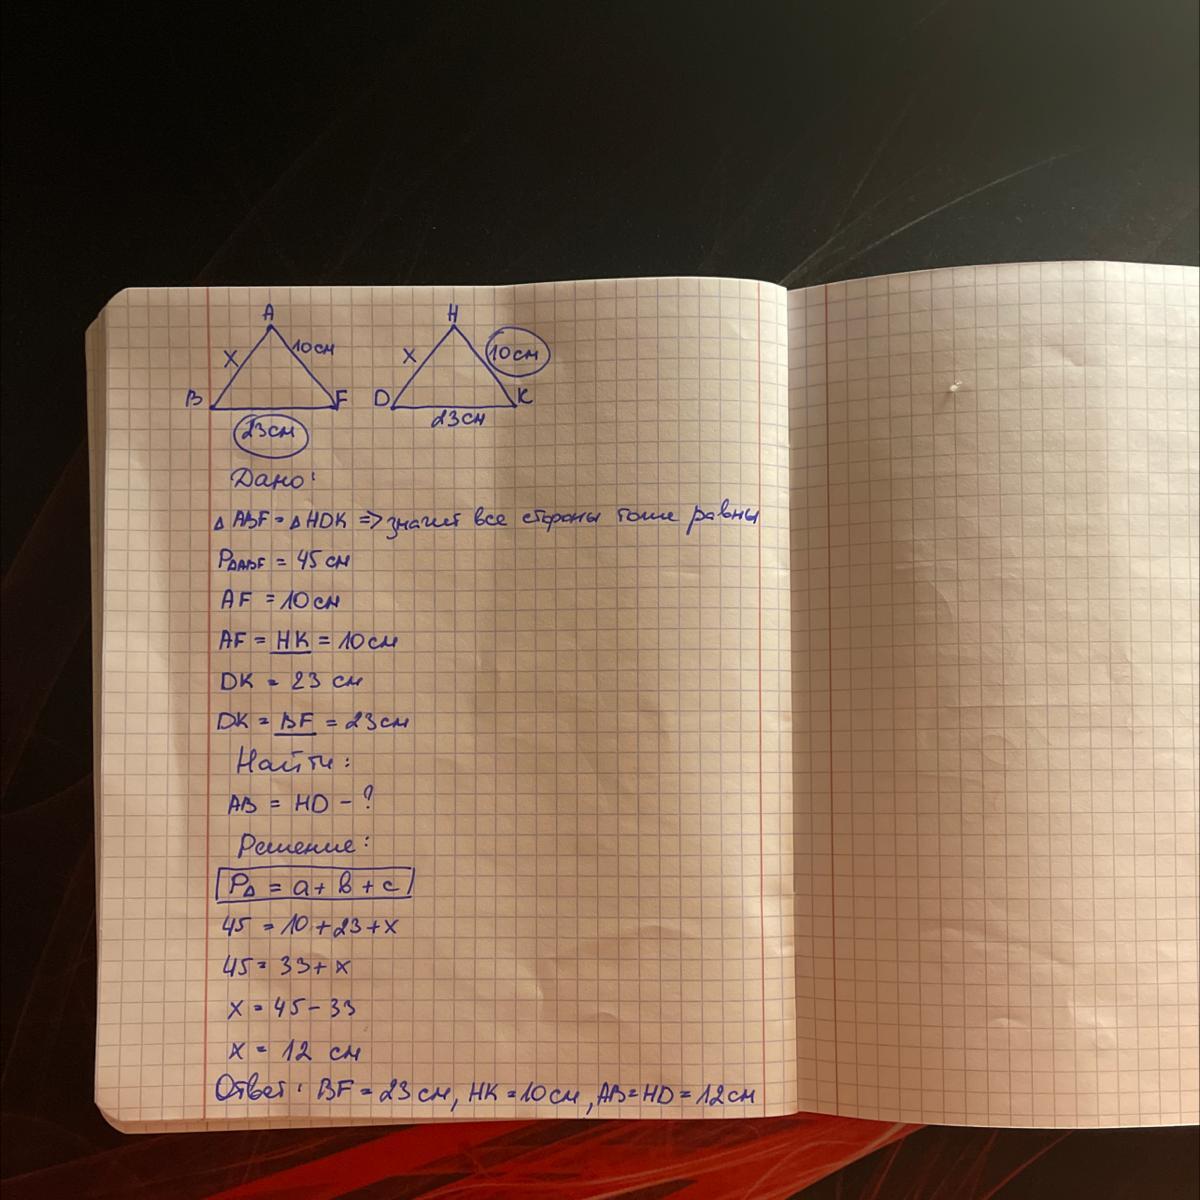 A H
X 10см X 10см
B F D K
23см 23см
Дано:
△ ABF = △ HDK => значит все стороны тоже равны
P△ABF = 45 см
AF = 10 см
AF = HK = 10 см
DK = 23 см
DK = BF = 23 см
Найти:
AB = HD - ?
Решение:
P△ = a + b + c
45 = 10 + 23 + x
45 = 33 + x
x = 45 - 33
x = 12 см
Ответ: BF = 23 см, HK = 10 см, AB = HD = 12 см